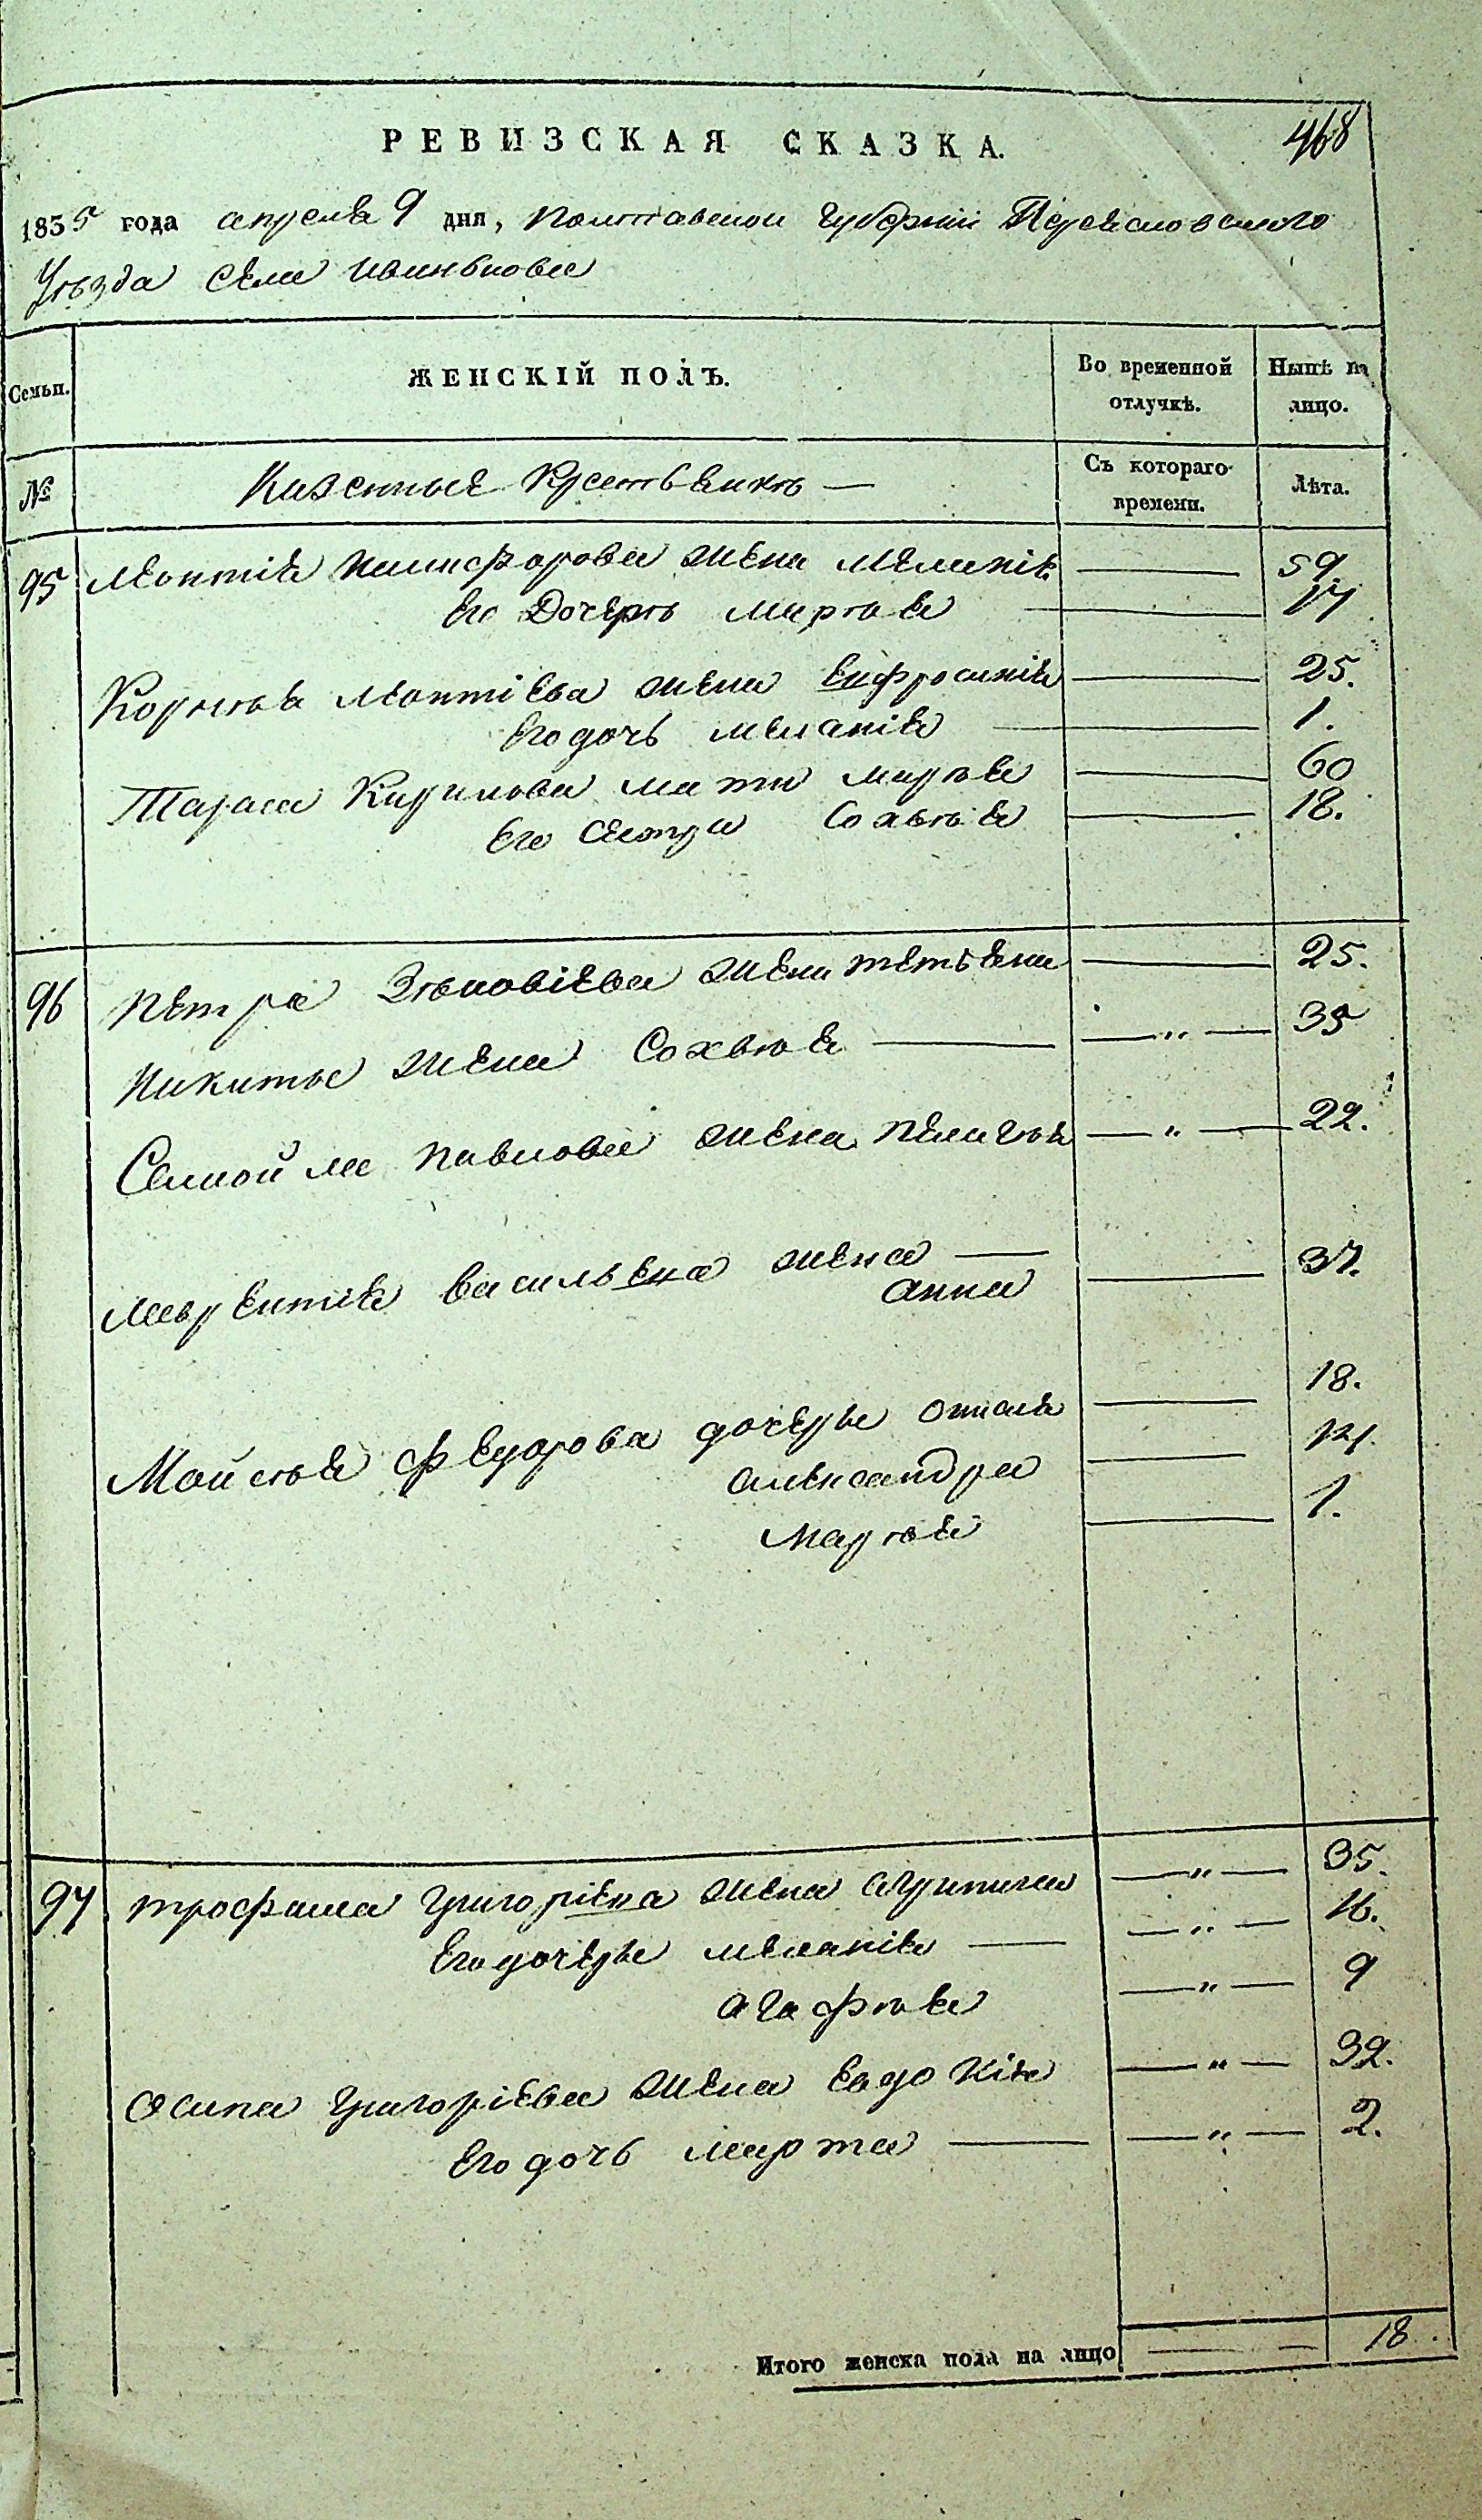 468
РЕВИЗСКАЯ СКАЗКА.
1835 года апреля 9 дня, Полтавской Губерніи Переясловского
Уезда Села
Семьи.
ЖЕНСКІЙ ПОЛЪ.
Во временной отлучкѣ.
Нынѣ на лицо.
№
Казенные
Съ котораго времени.
Лѣта.
95 Леонтія Никифорова жена Меланія 59.
Его Дочери Марія 17
Корнія Леонтіева жена Ефросинія 25.
Его дочь Меланія 1.
Тараса Кирилова мати Марія 60
Его сестра Сохвія 18.
96 Петра Зиновіева жена Тетьяна 25.
Никиты жена Сохвія — „ — 35
Самойла Павлова жена Пелагія — „ — 22.
Лаврентія Васильева жена —
Анна 37.
Мойсія Федорова дочери 18.
Александра 14.
Марія 1.
97 Трофима Григоріева жена Агрипина — „ — 35.
Его дочери Меланія — „ — 16.
Агафія — „ — 9
Осипа Григоріева жена Евдокія — „ — 32.
Его дочь Марта — „ — 2.
Итого женска пола на лицо 18.